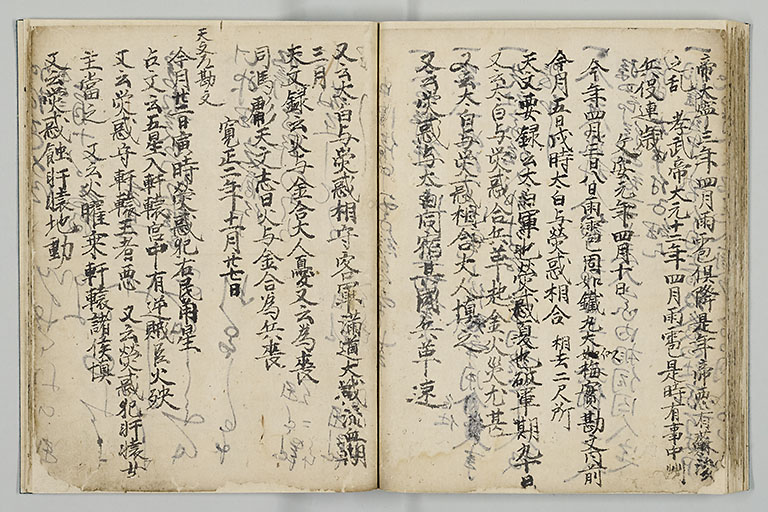 三年四月雨雹俱降是年帝悪有蘇峻
之乱 孝武帝大元十二年四月雨雹是時有事中州
兵役連歳
文安元年四月十日
一今年四月三日八日雨雹固如鐵丸大如梅實勘文同前
今月五日戌時太白与熒惑相合 相去二尺所
天文要録云太白軍也熒惑憂也破軍期九十日
又云太白与熒惑合兵革起金火災尤甚
又云太白与熒惑相合大人慎之
又云熒惑与太白同宿其國兵革
又云太白与熒惑相守客軍滿道大戰流血期
三月
天文録云火与金合大人憂又云為喪
天文志曰火与金合為兵喪
寛正二年十一月廿七日
天文勘文
今月廿三日寅時熒惑犯右民角星
占文云五星入軒轅宮中有逆賊兵火殃
又云熒惑守軒轅王者悪 又云熒惑犯軒轅女
主當之 又云火曜乗軒轅諸侯慎
又云熒惑蝕軒轅地動